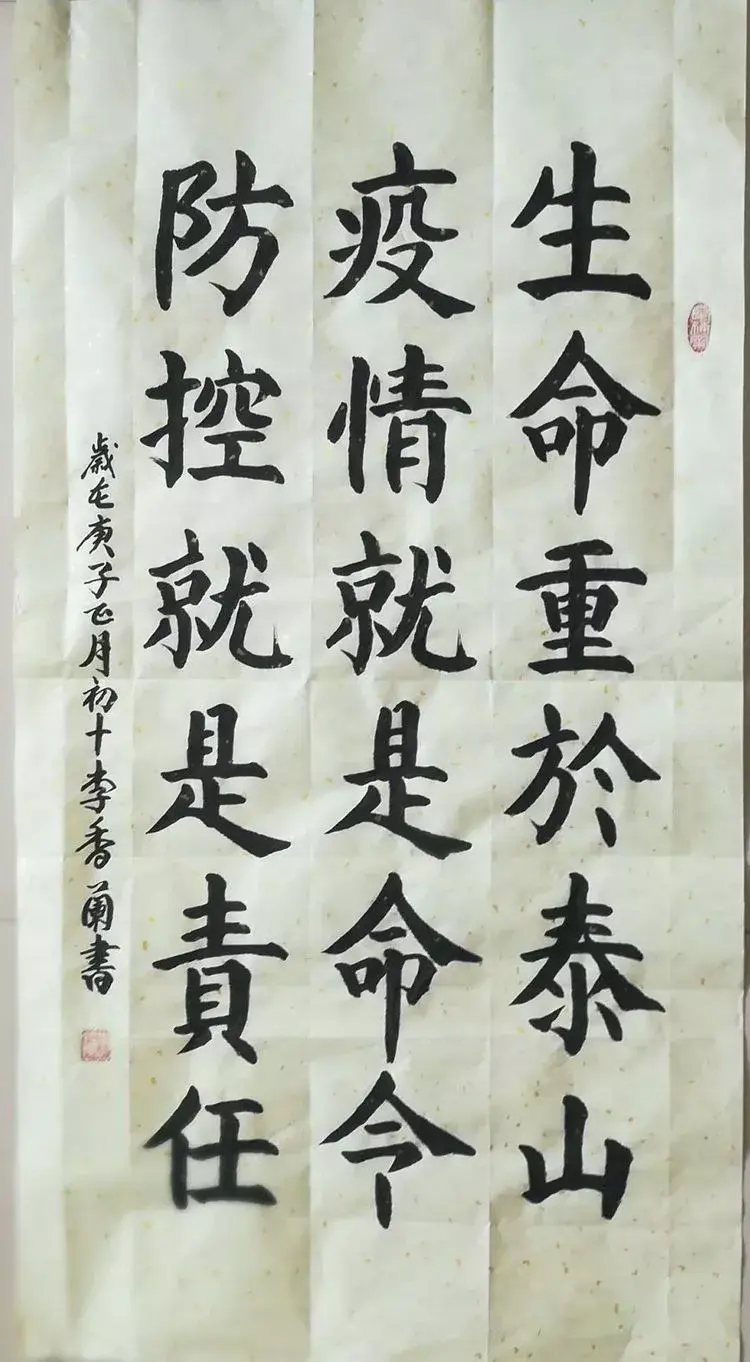 生命重於泰山
疫情就是命令
防控就是責任
歲在庚子正月初十李香蘭書